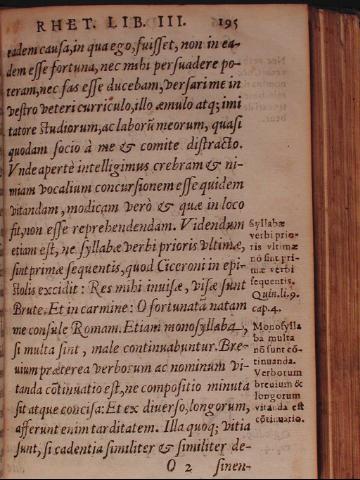 RHET. LIB. III. 195
eadem causa, in qua ego, fuisset, non in ea-
dem esse fortuna, nec mihi persuadere po-
teram, nec fas esse ducebam, versari me in
vestro veteri curriculo, illo æmulo atq; imi
tatore studiorum, ac laborũ meorum, quasi
quodam socio à me & comite distracto.
Vnde apertè intelligimus crebram & ni-
miam vocalium concursionem esse quidem
vitandam, modicam verò & quæ in loco
fit, non esse reprehendendam. Videndum
etiam est, ne syllabæ verbi prioris vltimæ,
sint primæ sequentis, quod Ciceroni in epi-
stolis excidit: Res mihi invisæ, visæ sunt
Brute. Et in carmine: O fortunatã natam
me consule Romam. Etiam monosyllaba,
si multa sint, male continuabuntur. Bre-
uium præterea verborum ac nominum vi-
tanda cõtinuatio est, ne compositio minuta
sit atque concisa: Et ex diverso, longorum,
afferunt enim tarditatem. Illa quoq; vitia
sunt, si cadentia similiter & similiter de-
O 2 sinen-
Syllabæ
verbi prio-
ris vltimæ
nõ sint pri-
mæ verbi
sequentis.
Quin. li. 9.
cap. 4.
Monosylla
ba multa
nõ sunt cõ-
tinuanda.
Verborum
breuium &
longorum
vitanda est
cõtinuatio.